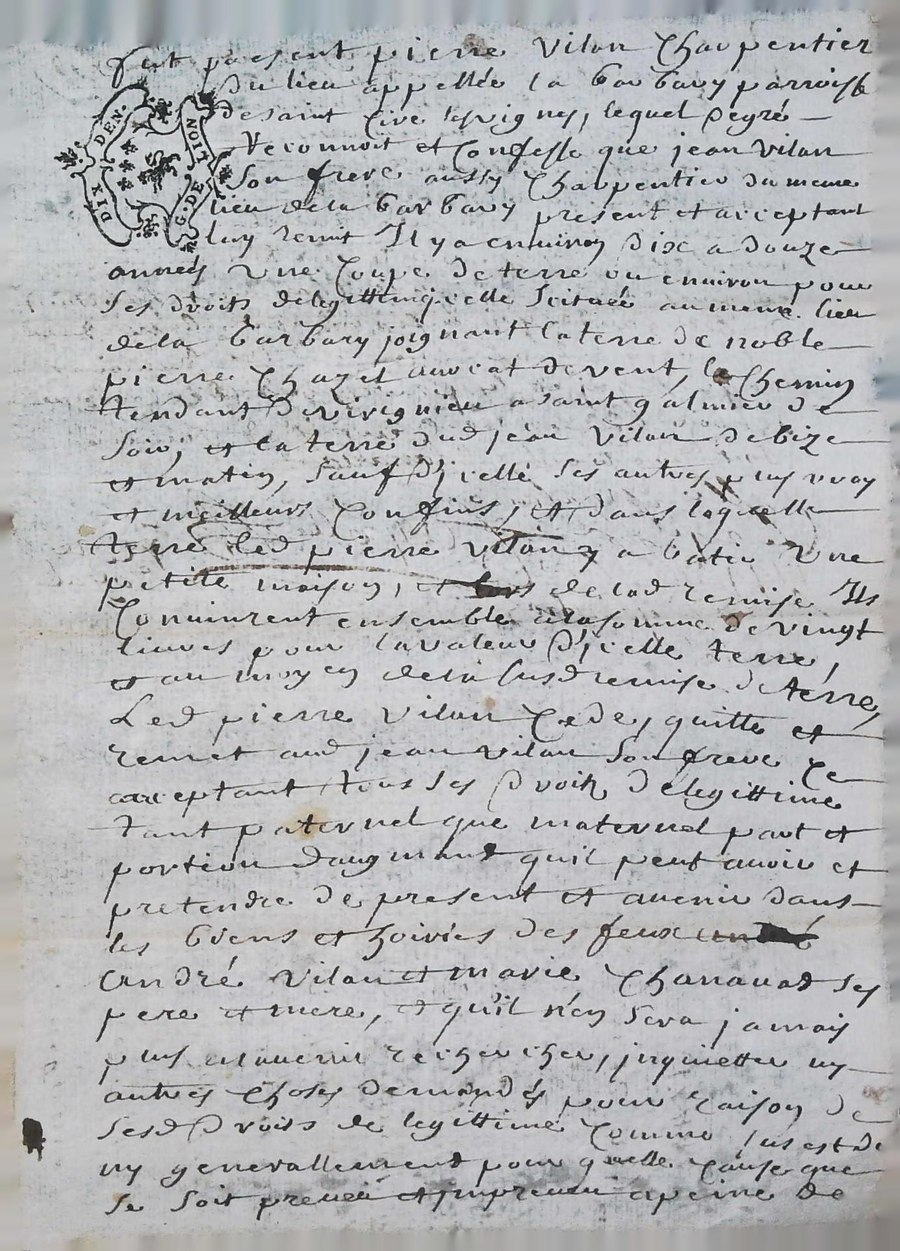 fut present pierre vilan Charpentier
du lieu appellée la barbary parroisse
de saint Cire les vignes, lequel de gré
Reconnoit et Confesse que jean vilan
Son frere aussy Charpentier du meme
DIX DEN.
G. DE LION
lieu de la barbary present et acceptant
luy remit Il y a environ dix a douze
années une Coupe de terre ou environ pour
ses droits de legittime icelle scituée au meme lieu
de la barbary joignant la terre de noble
pierre Chazel avocat de vent, le Chemin
tendant de virignieu a saint galmier de
soir, et la terre dud jean vilan de bize
et matin, sauf d'icelle ses autres plus vray
et meilleurs Confins, et dans laquelle
terre led pierre vilan y a batir une
petite maison, et lors de lad remise Ils
Convinrent ensemble a la somme de vingt
livres pour la valeur d'icelle terre,
et au moyen de la susd remise de terre,
Led pierre vilan Cede, quitte et
remet aud jean vilan son frere Ce
acceptant tous ses droits de legittime
tant paternel que maternel part et
portion daugmand quil peut avoir et
pretendre de present et avenir dans
les biens et hoiries des feux
André vilan et marie Chanavat ses
pere et mere, et qu'il n'en sera jamais
plus a l'avenir rechercher, inquietter ny
autres Choses demandés pour raison de
sesd droits de legittime Comme sus est dt
ny generallement pour quelle Cause que
se soit preveu et impreveu a peine de